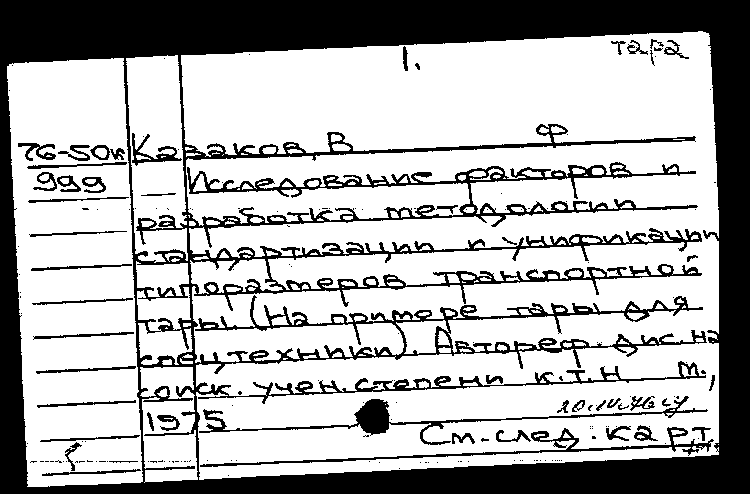 1.
тара
76-50к Казаков, В ф
999 Исследование факторов и
разработка методологии
стандартизации и унификации
типоразмеров транспортной
тары. (На примере тары для
спец.техники). Автореф. дис. на
соиск. учен. степени к.т.н М.,
1975
См. след. карт.